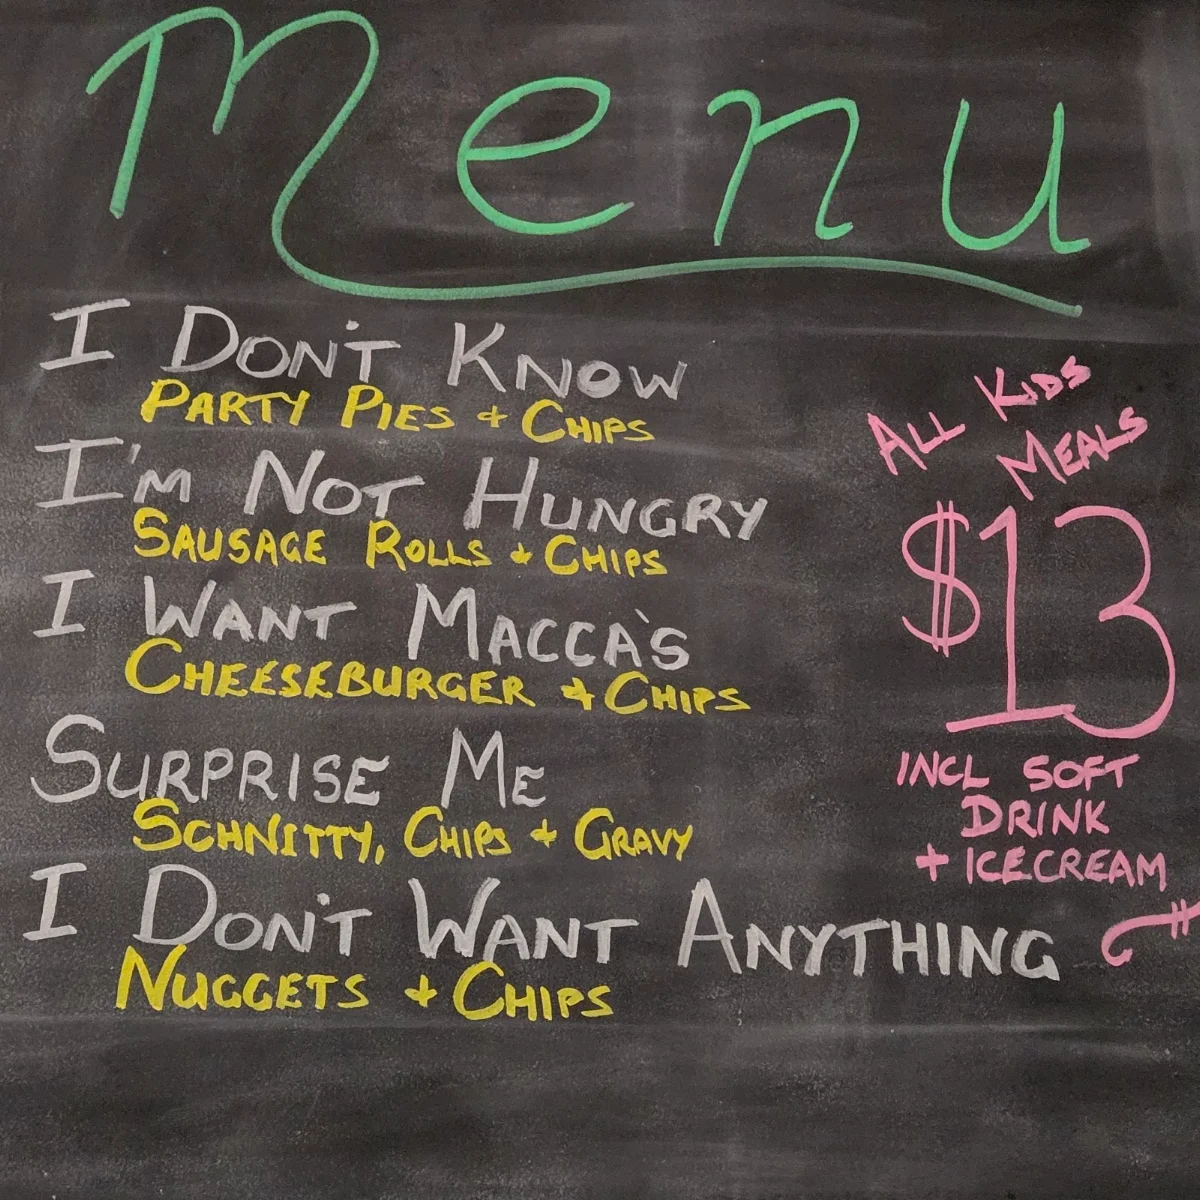 Menu
I DON'T KNOW
PARTY PIES + CHIPS
I'M NOT HUNGRY
SAUSAGE ROLLS + CHIPS
I WANT MACCA'S
CHEESEBURGER + CHIPS
SURPRISE ME
SCHNITTY, CHIPS + GRAVY
I DON'T WANT ANYTHING
NUGGETS + CHIPS
ALL KIDS
MEALS
$13
INCL SOFT
DRINK
+ ICECREAM